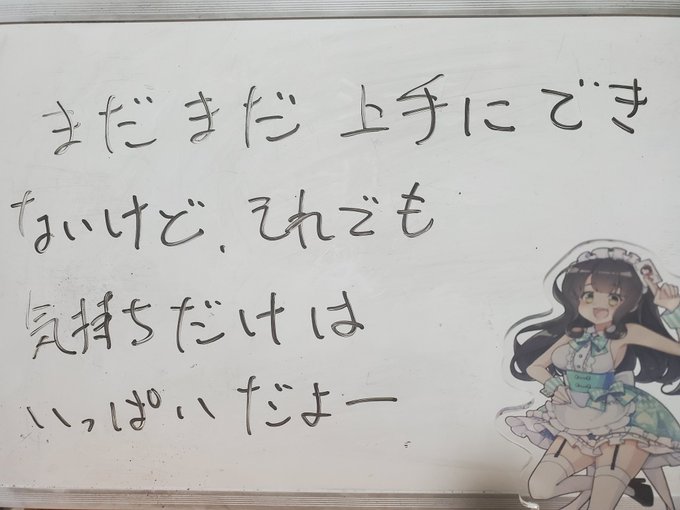 まだまだ上手にでき
ないけど、それでも
気持ちだけは
いっぱいだよー